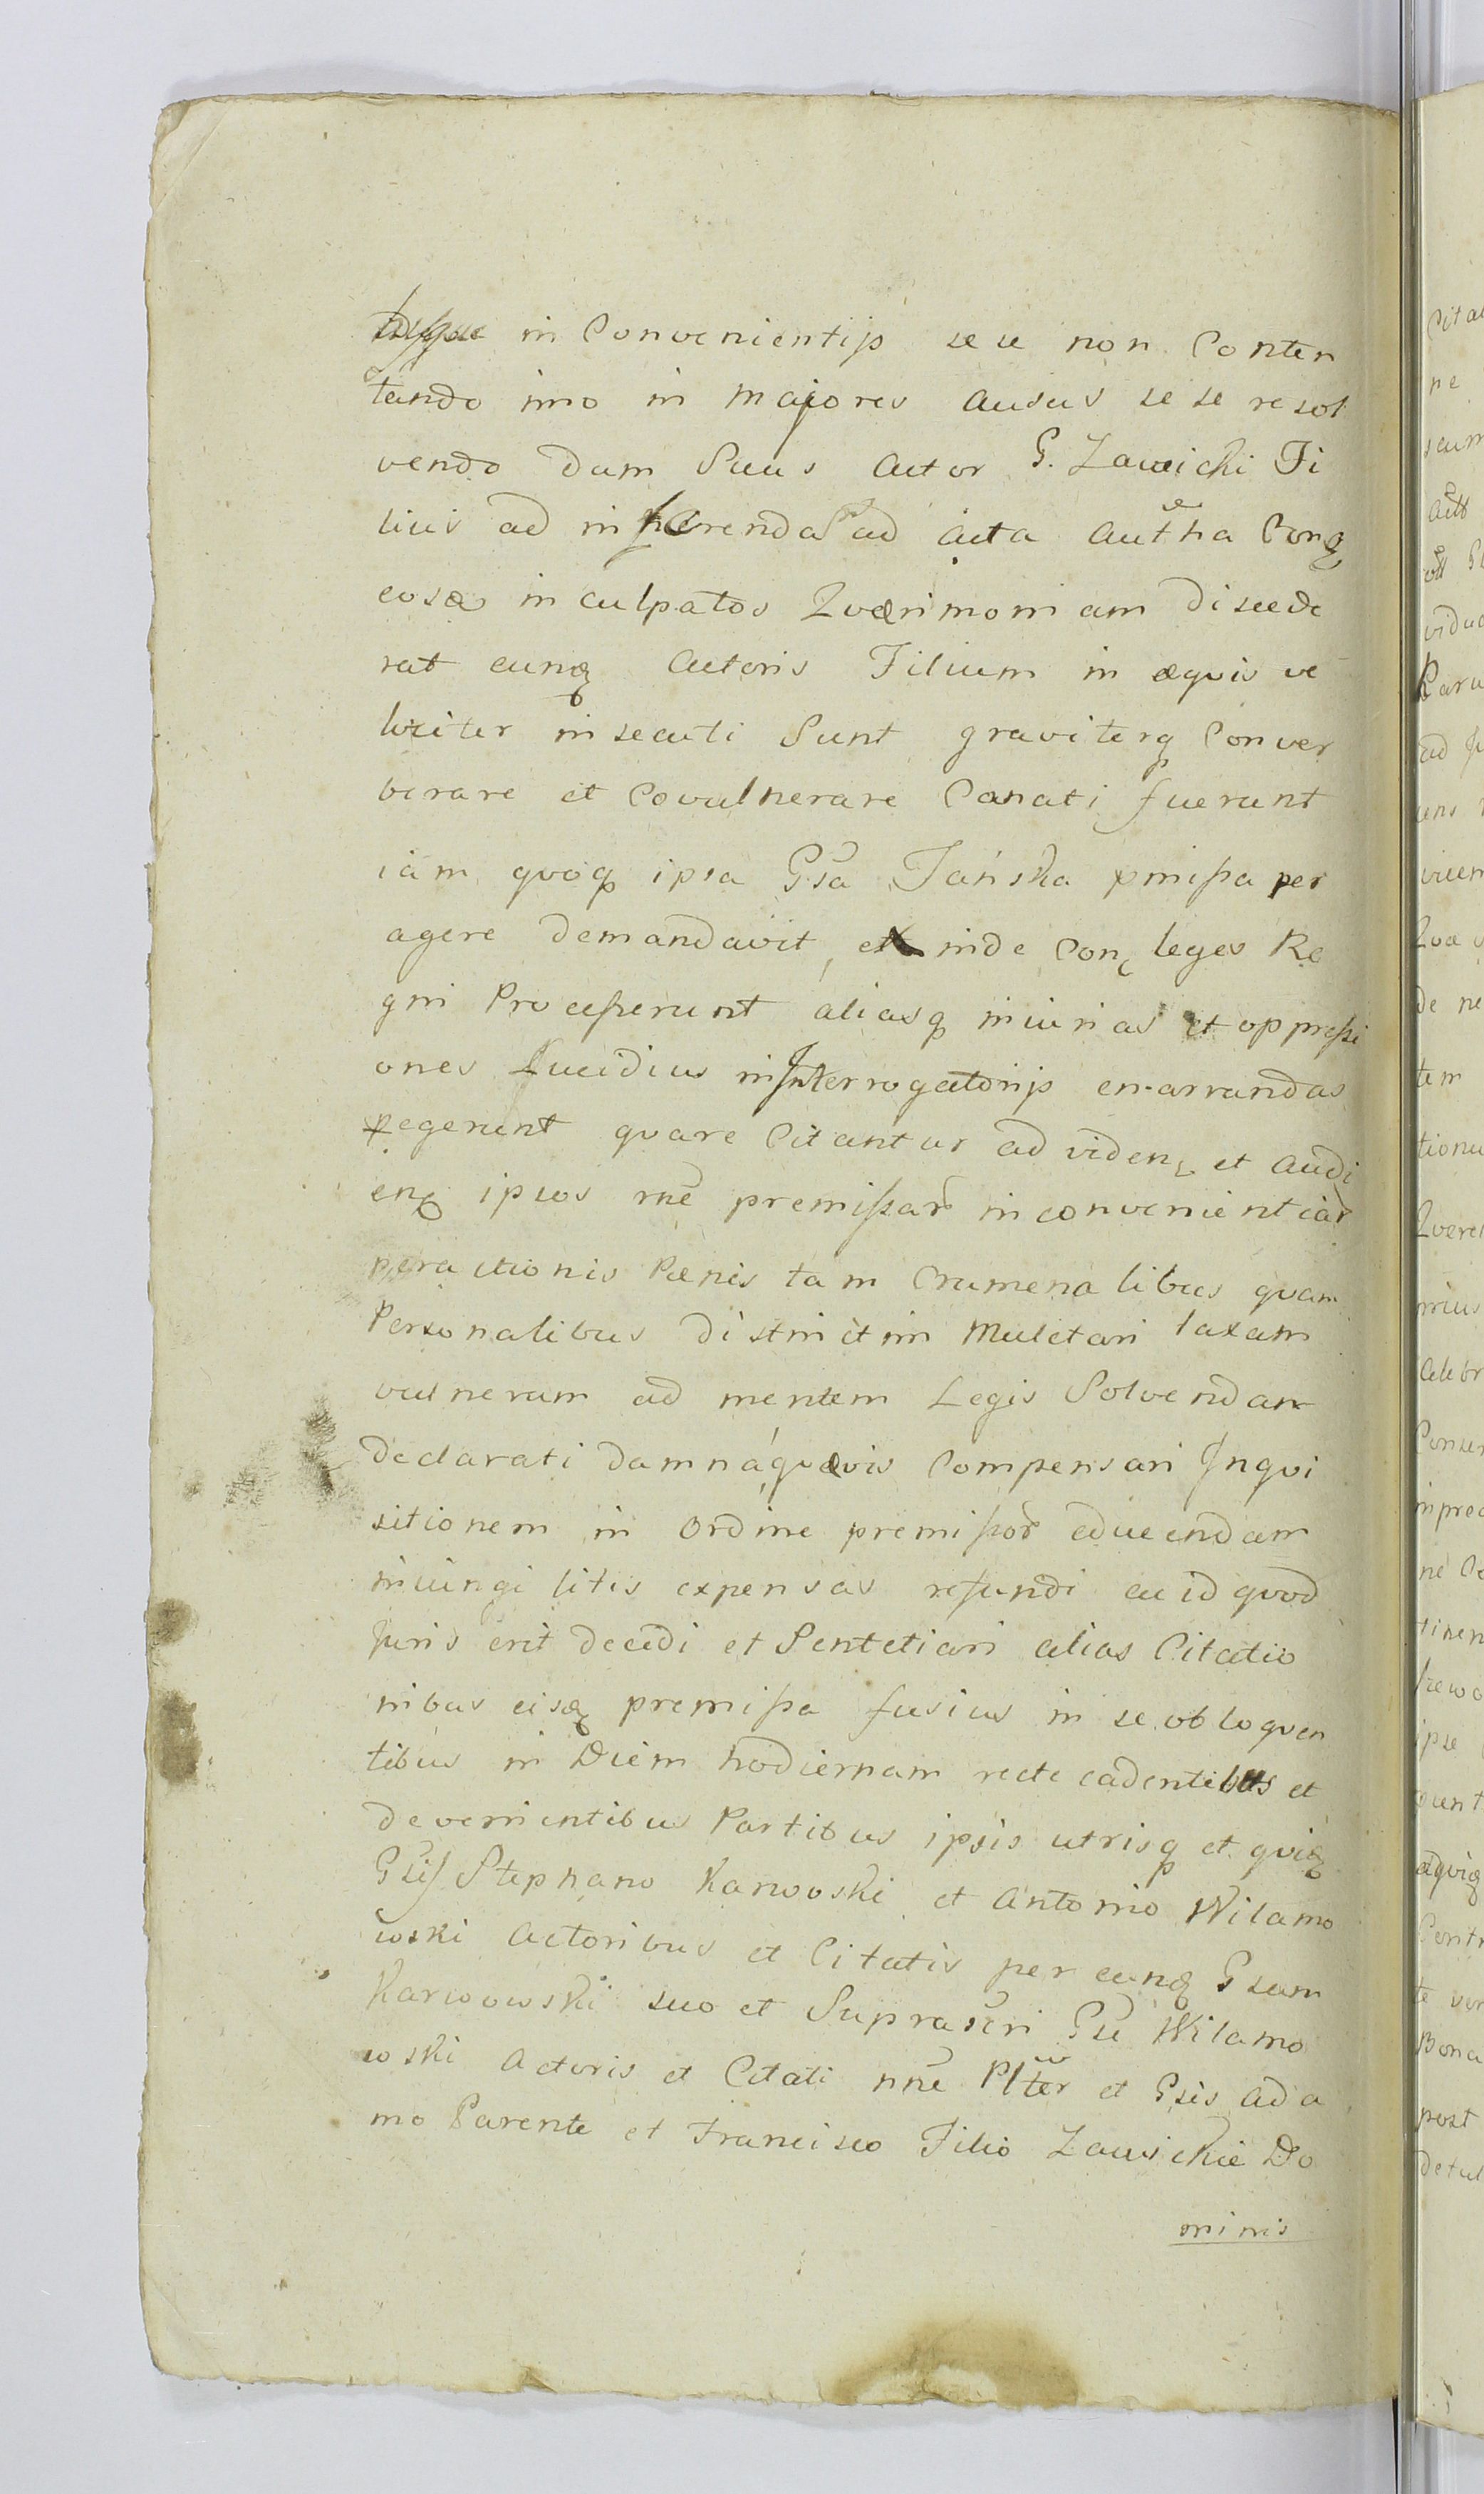 in Convenientijs sese non Conten
tando imo in majores ausus sese resol
vendo dum Suus Actor G. Zawicki Fi
lius ad inferenda ad acta Autha Conq
eosq inculpatos Quærimoniam discede
rat eunq Actoris Filium in æquis ve
lociter insecuti Sunt graviterq Conver
berare et Covulnerare Conati fuerunt
iam quoq ipsa Gsa Jańska pmissa per
agere demandavit, et inde Con leges Re
gni Processerunt aliasq iniurias et oppressi
ones Lucidius in Interrogatorijs enarrandas
pegerunt quare Citantur ad viden et Audi
enq ipsos rne premissar inconvenientiar
peractionis Pænis tam Crumenalibus quam
Personalibus districtim Mulctari taxam
vulnerum ad mentem Legis Solvendam
declarati damna quævis Compensari Inqui
sitionem in Ordine premissor educendam
iniungi litis expensas refundi eu id quod
Juris erit decidi et Sentetiari alias Citatio
nibus eisq premissa fusius in se obloquen
tibus in Diem hodiernam recte cadentibus et
devenientibus Partibus ipsis utrisq et quiq
Gsis Stephano Karwoski et Antonio Wilamo
wski Actoribus et Citatis per eunq Gsum
Karwowski suo et Suprascri Gsi Wilamo
wski Actoris et Citati nne Plter et Gsis Ada
mo Parente et Francisco Filio Zawickie Do
minis
Cita
ne
sum
vidua
Karw
ad
vicem
de ne
tem
tionu
Querel
Celebr
ipse
Bona
post
detul